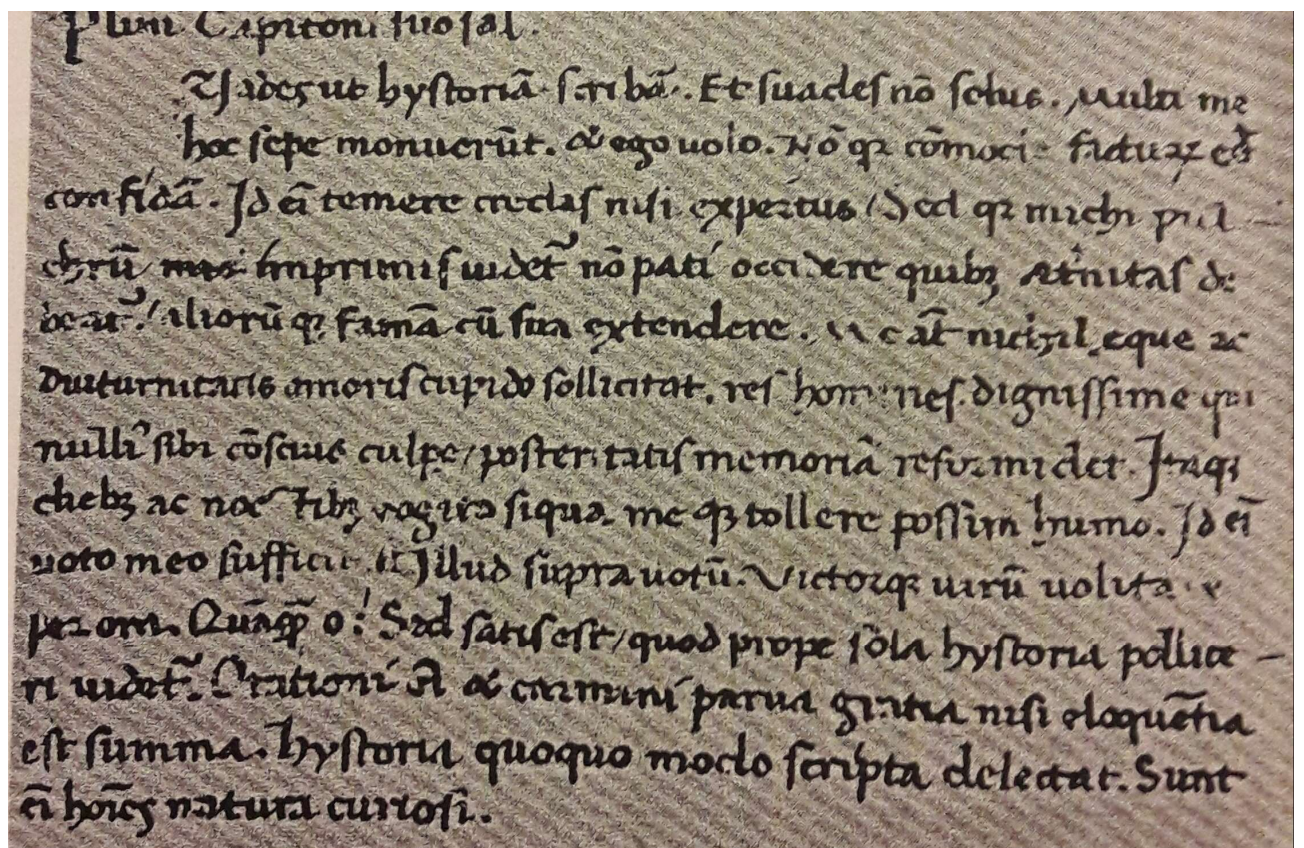 Plinī Capitoni suo sal.
suades ut hystoriā scribā. Et suades nō solus. Multi me
hoc sepe monuerūt. & ego uolo. Nō qꝛ cōmode facturꝫ eē
confidā. Id eī temere credas nisi expertus / Sed qꝛ michi pul
chrū imprimis uidet᷑ nō pati occidere quibꝫ ætnitas de
beat᷑ / aliorūqꝫ famā cū sua extendere. Me aūt nichil eque ac
diuturnitatis amoris cupido sollicitat. res homines dignissime qui
nulliꝰ sibi cōscius culpe / posteritatis memoriā reformidet. Itaqꝫ
diebꝫ ac noctibꝫ cogito siqua me qꝫ tollere possim humo. Id eī
uoto meo sufficit. Illud supra uotū. Victorqꝫ uirū uolitare
per ora. Quāqꝫ o! Sed satis est / quod prope sola hystoria pollice
ri uidet᷑. Orationi & carmini parua gratia nisi eloquētia
est summa. hystoria quoquo modo scripta delectat. Sunt
eī hoīes natura curiosi.